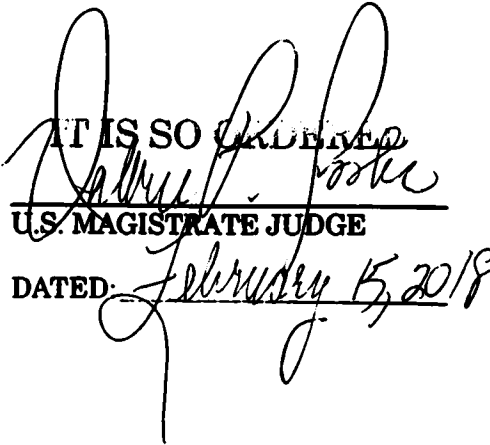 IT IS SO ORDERED
U.S. MAGISTRATE JUDGE
DATED: February 15, 2018